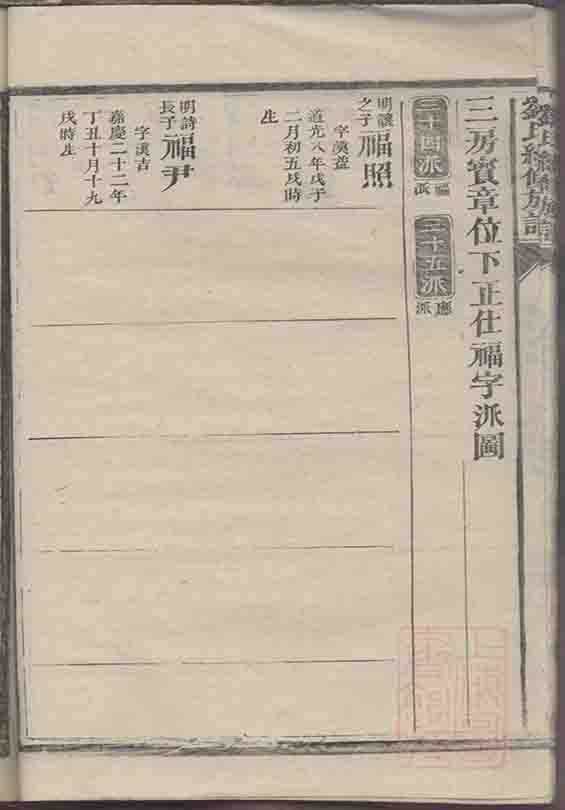 劉氏續修族譜
三房實章位下正仕福字派圖
三十四派 福派
三十五派 應派
明讓之子
福照
字漢益
道光八年戊子
二月初五戌時
生
明詩長子
福尹
字漢吉
嘉慶二十二年
丁丑十月十九
戌時生